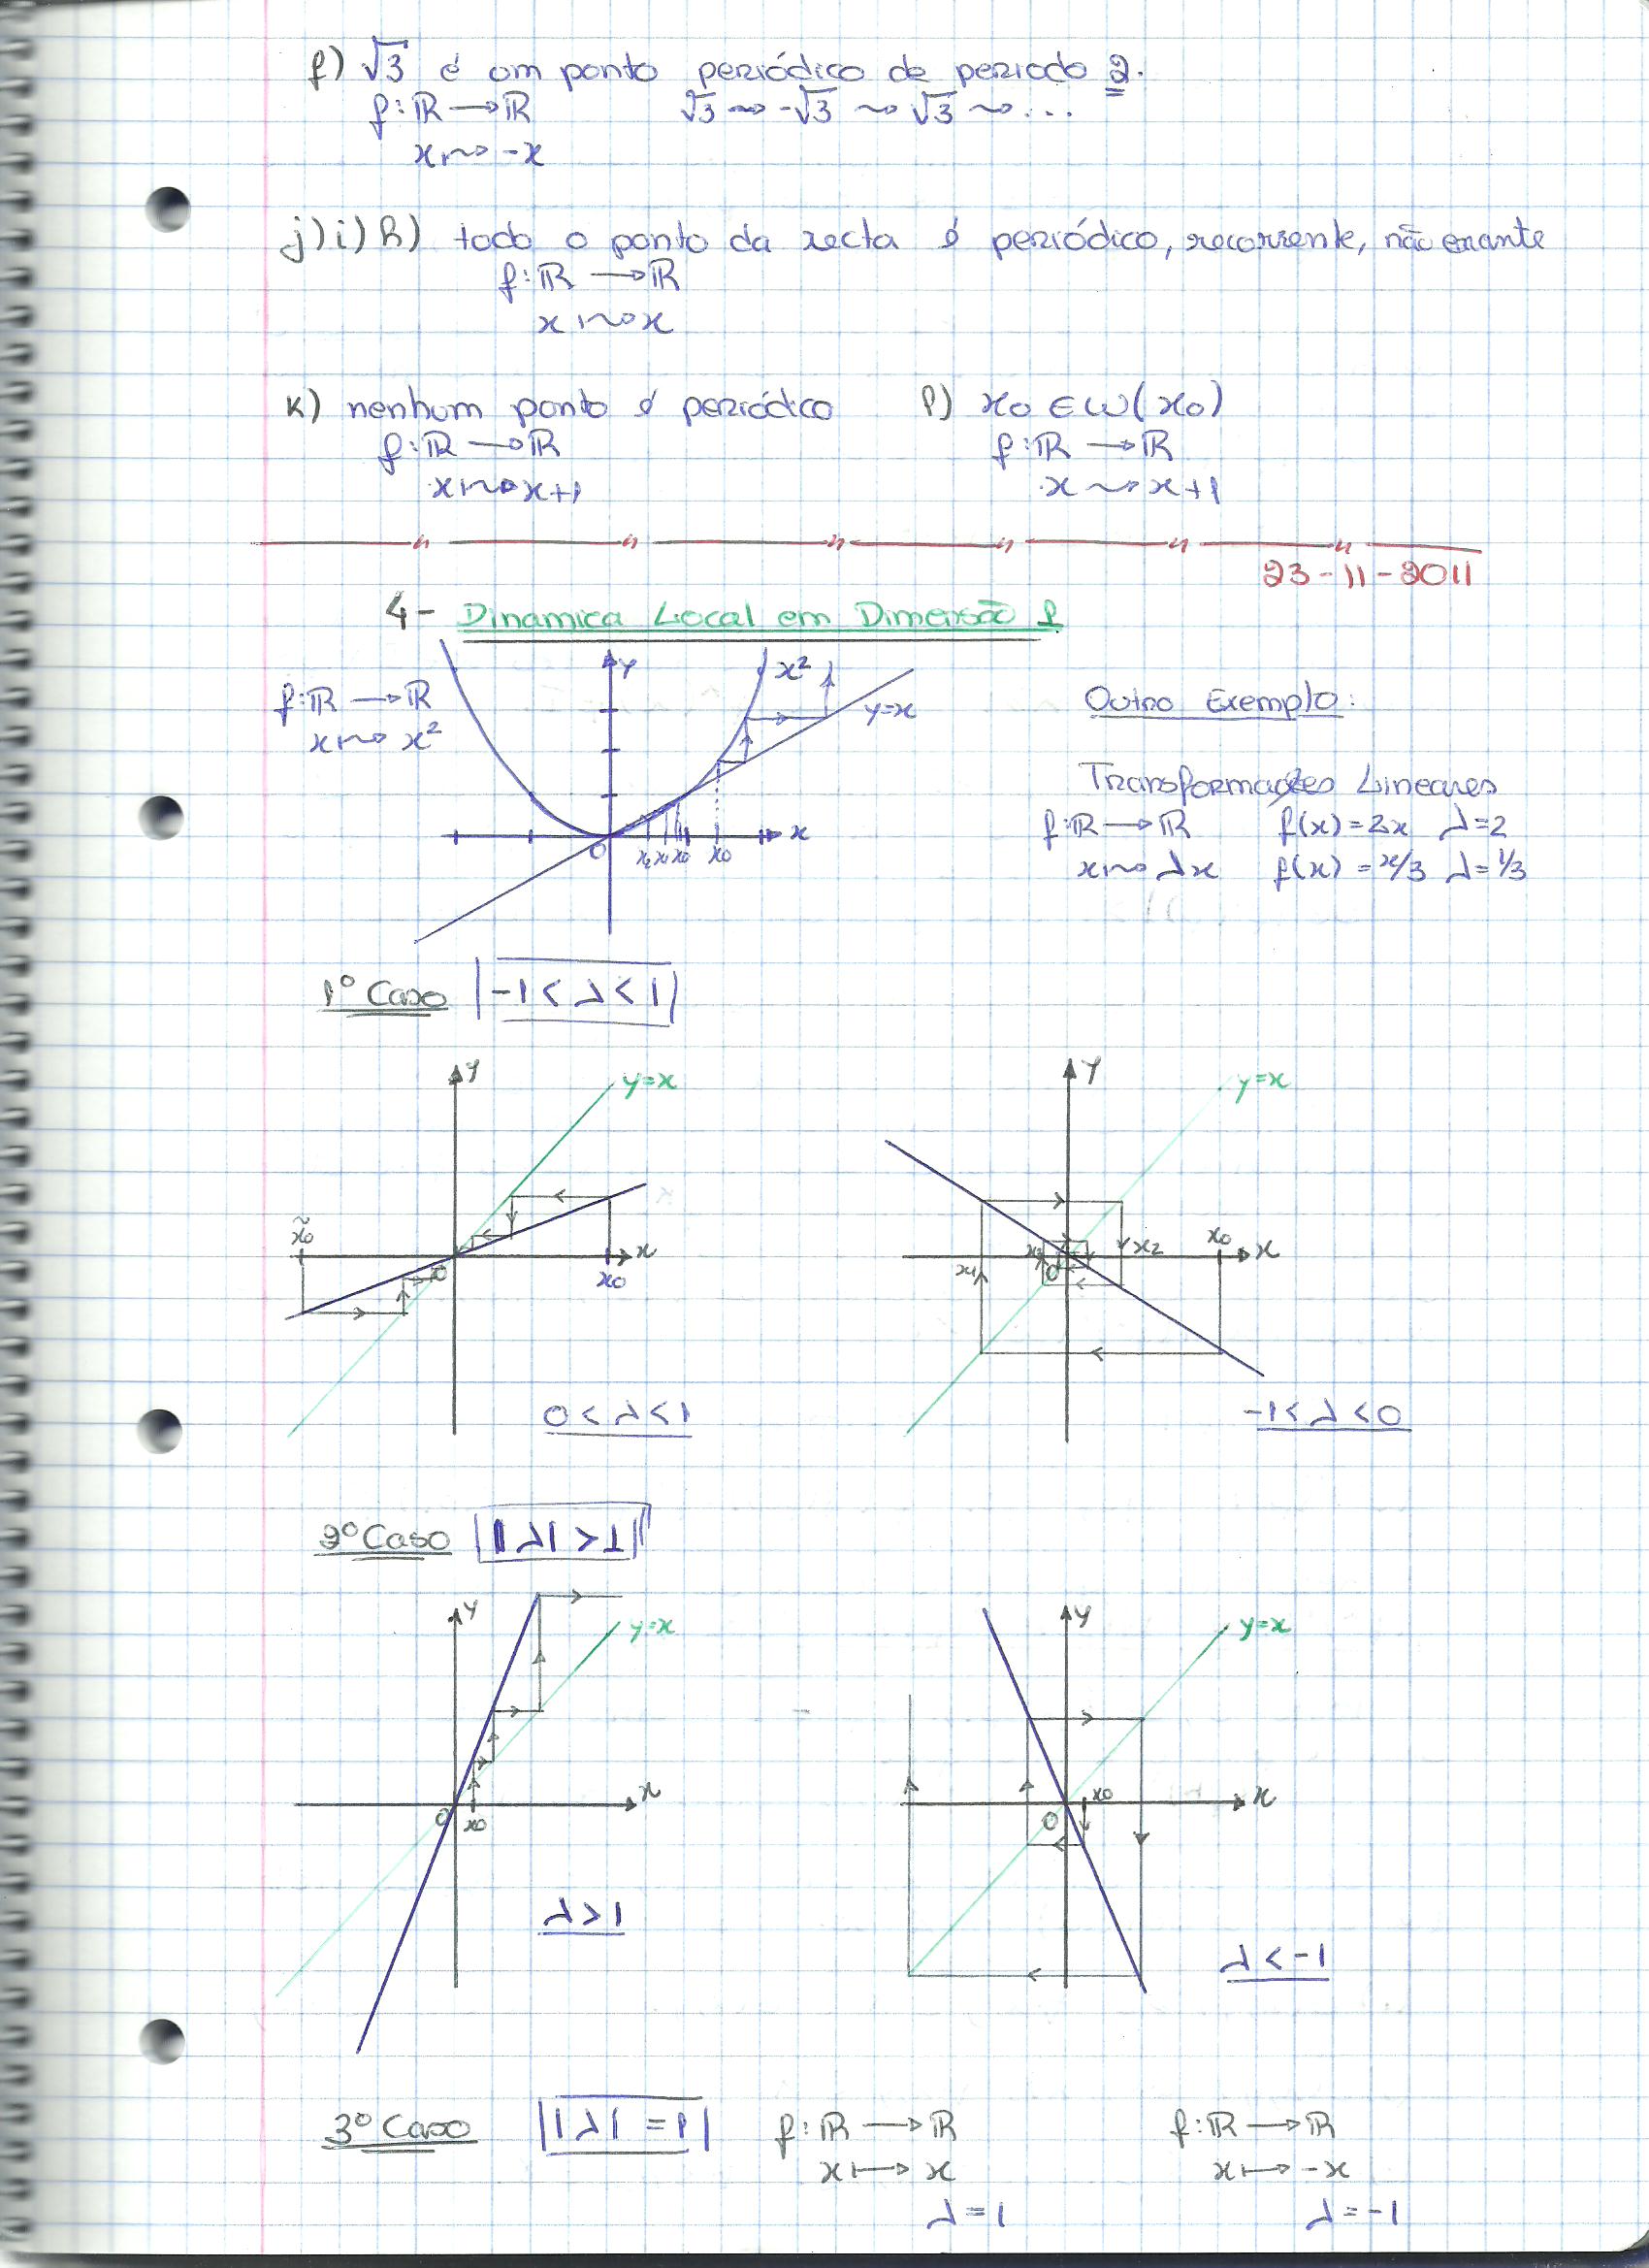 f) √3 é um ponto periódico de periodo 2.
f: ℝ → ℝ √3 ⇝ -√3 ⇝ √3 ⇝ ...
x ⇝ -x
j) i) h) todo o ponto da recta é periódico, recorrente, não errante
f: ℝ → ℝ
x ⇝ x
K) nenhum ponto é periódico l) x0 ∈ ω(x0)
f: ℝ → ℝ f: ℝ → ℝ
x ⇝ x+1 x ⇝ x+1
23-11-2011
4- Dinamica Local em Dimensão 1
f: ℝ → ℝ
x ⇝ x²
y x² y=x
0 x2 x1 x0 x0 x
Outro Exemplo:
Transformações Lineares
f: ℝ → ℝ f(x)=2x λ=2
x ⇝ λx f(x)=x/3 λ=1/3
1º Caso |-1<λ<1|
y y=x y y=x
x̃0 0 x0 x x1 x3 0 x2 x0 x
0<λ<1 -1<λ<0
2º Caso ||λ|>1|
y y=x y y=x
0 x0 x 0 x0 x
λ>1 λ<-1
3º Caso ||λ|=1| f: ℝ → ℝ f: ℝ → ℝ
x ↦ x x ↦ -x
λ=1 λ=-1